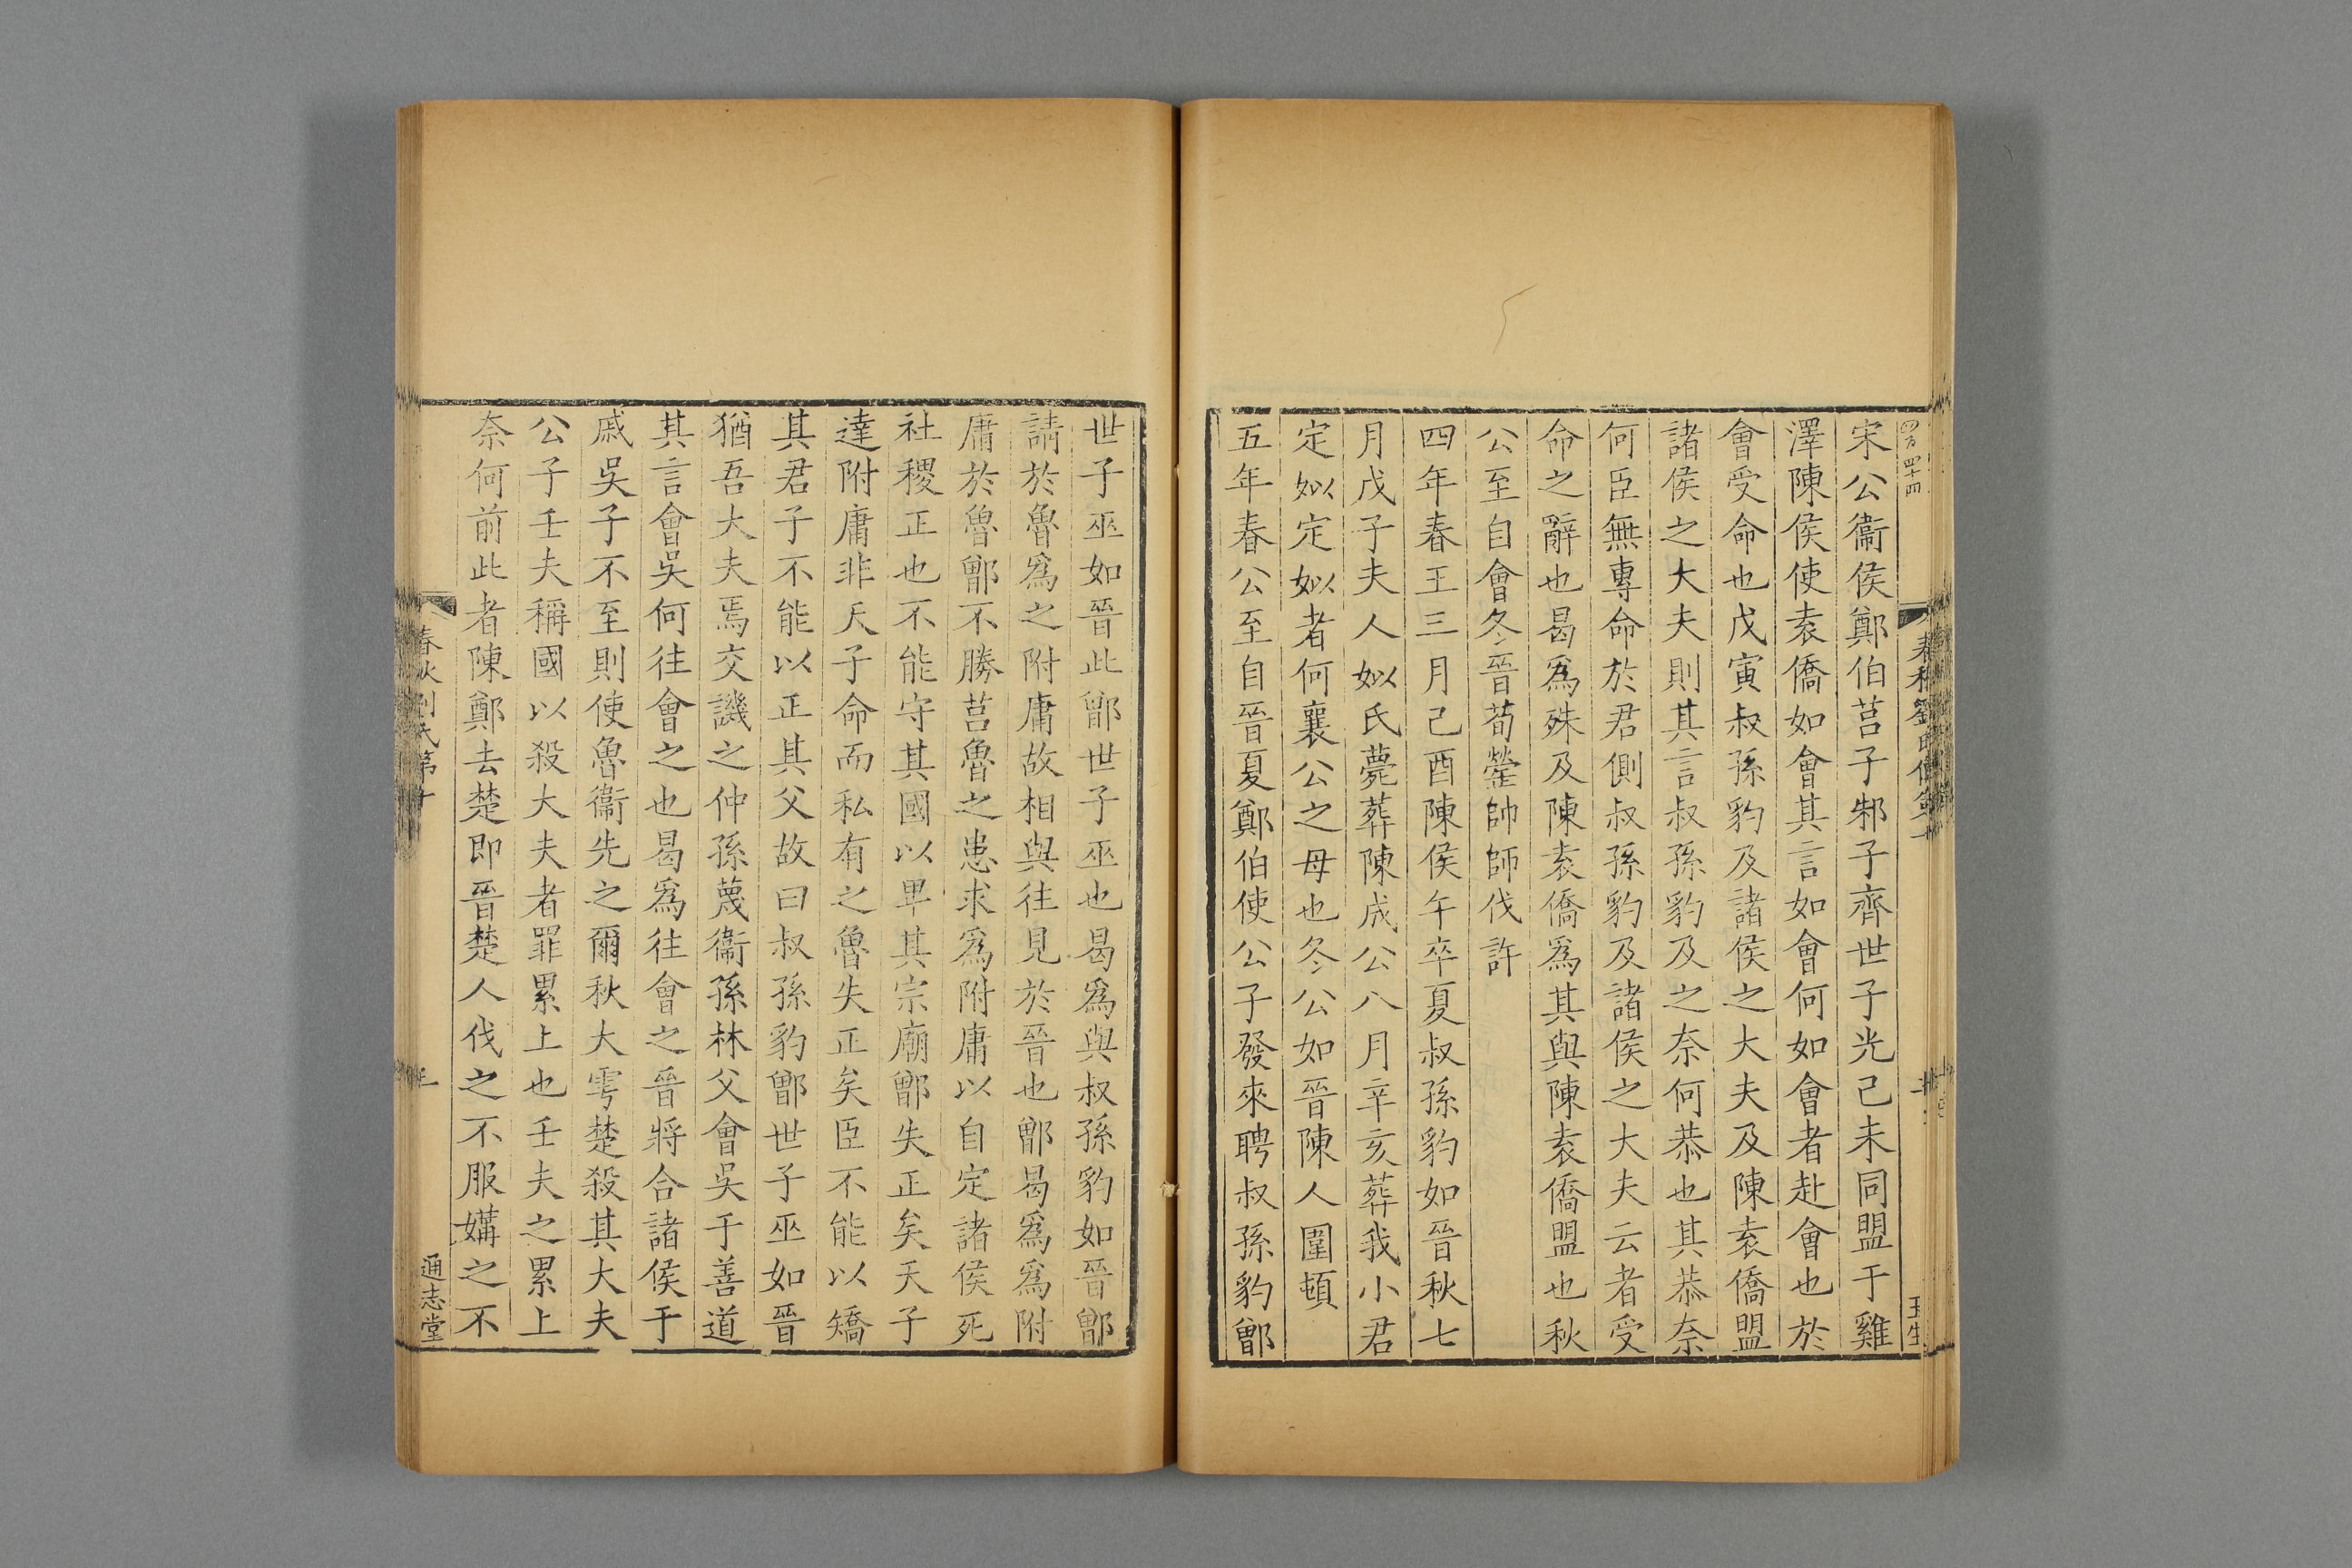 宋公衞侯鄭伯莒子邾子齊世子光己未同盟于雞
澤陳侯使袁僑如會其言如會何如會者赴會也於
會受命也戊寅叔孫豹及諸侯之大夫及陳袁僑盟
諸侯之大夫則其言叔孫豹及之奈何恭也其恭奈
何臣無專命於君側叔孫豹及諸侯之大夫云者受
命之辭也曷爲殊及陳袁僑爲其與陳袁僑盟也秋
公至自會冬晉荀罃帥師伐許
四年春王三月己酉陳侯午卒夏叔孫豹如晉秋七
月戊子夫人姒氏薨葬陳成公八月辛亥葬我小君
定姒定姒者何襄公之母也冬公如晉陳人圍頓
五年春公至自晉夏鄭伯使公子發來聘叔孫豹鄫
世子巫如晉此鄫世子巫也曷爲與叔孫豹如晉鄫
請於魯爲之附庸故相與往見於晉也鄫曷爲爲附
庸於魯鄫不勝莒魯之患求爲附庸以自定諸侯死
社稷正也不能守其國以畀其宗廟鄫失正矣天子
達附庸非天子命而私有之魯失正矣臣不能以矯
其君子不能以正其父故曰叔孫豹鄫世子巫如晉
猶吾大夫焉交譏之仲孫蔑衞孫林父會吳于善道
其言會吳何往會之也曷爲往會之晉將合諸侯于
戚吳子不至則使魯衞先之爾秋大雩楚殺其大夫
公子壬夫稱國以殺大夫者罪累上也壬夫之累上
奈何前此者陳鄭去楚即晉楚人伐之不服媾之不
春秋劉氏第十
通志堂